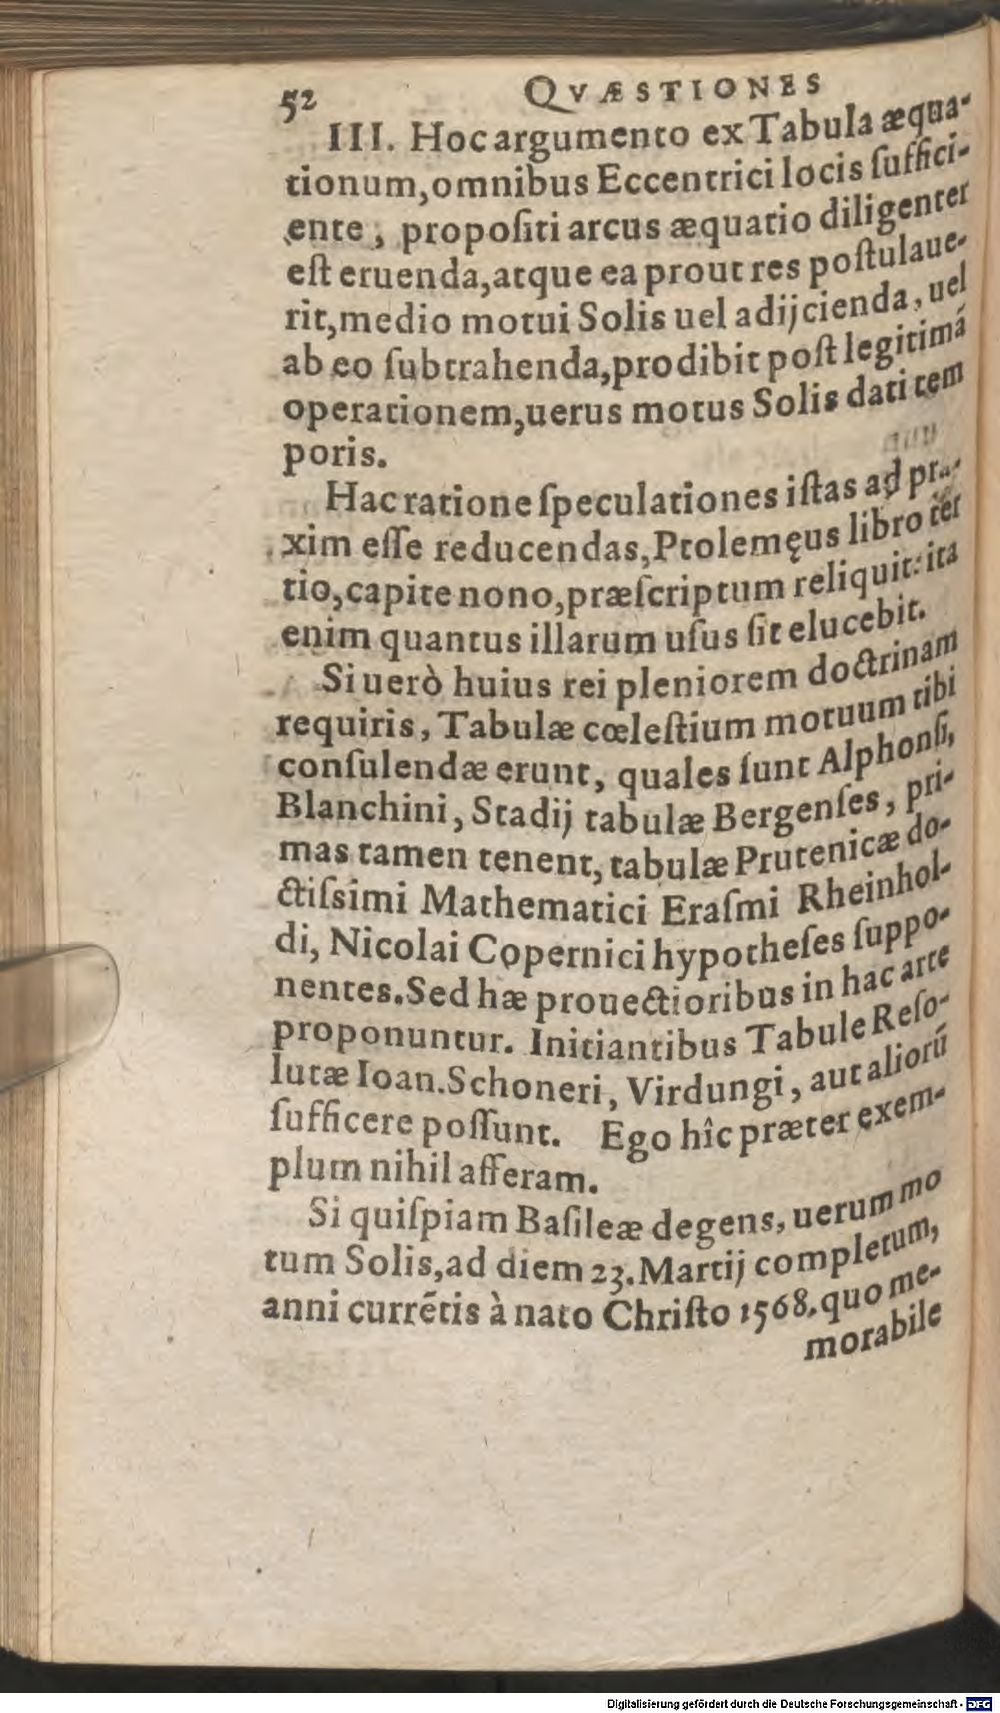 52 QVÆSTIONES
III. Hoc argumento ex Tabula æqua-
tionum, omnibus Eccentrici locis ſuffici-
ente, propoſiti arcus æquatio diligenter
eſt eruenda, atque ea prout res poſtulaue-
rit, medio motui Solis uel adijcienda, uel
ab eo ſubtrahenda, prodibit poſt legitimā
operationem, uerus motus Solis dati tem
poris.
Hac ratione ſpeculationes iſtas ad pra-
xim eſſe reducendas, Ptolemęus libro ter
tio, capite nono, præſcriptum reliquit: ita
enim quantus illarum uſus ſit elucebit.
Si uerò huius rei pleniorem doctrinam
requiris, Tabulæ cœleſtium motuum tibi
conſulendæ erunt, quales ſunt Alphonſi,
Blanchini, Stadij tabulæ Bergenſes, pri-
mas tamen tenent, tabulæ Prutenicæ do-
ctiſsimi Mathematici Eraſmi Rheinhol-
di, Nicolai Copernici hypotheſes ſuppo-
nentes. Sed hæ prouectioribus in hac arte
proponuntur. Initiantibus Tabule Reſo-
lutæ Ioan. Schoneri, Virdungi, aut aliorū
ſufficere poſſunt. Ego hîc præter exem-
plum nihil afferam.
Si quiſpiam Baſileæ degens, uerum mo
tum Solis, ad diem 23. Martij completum,
anni currētis à nato Chriſto 1568. quo me-
morabile
Digitalisierung gefördert durch die Deutsche Forschungsgemeinschaft - DFG